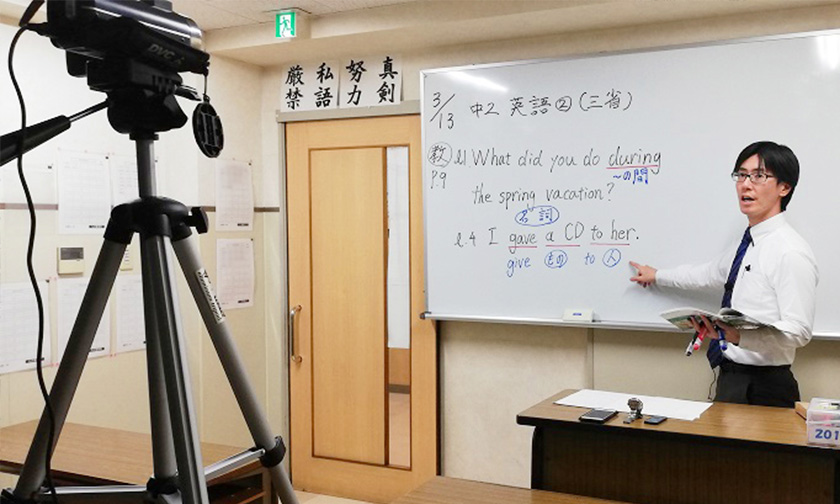 真剣
努力
私語
厳禁
3/13 中2 英語② (三省)
教 l.1 What did you do during
P.9 〜の間
the spring vacation?
名詞
l.4 I gave a CD to her.
give もの to 人
DVC
201